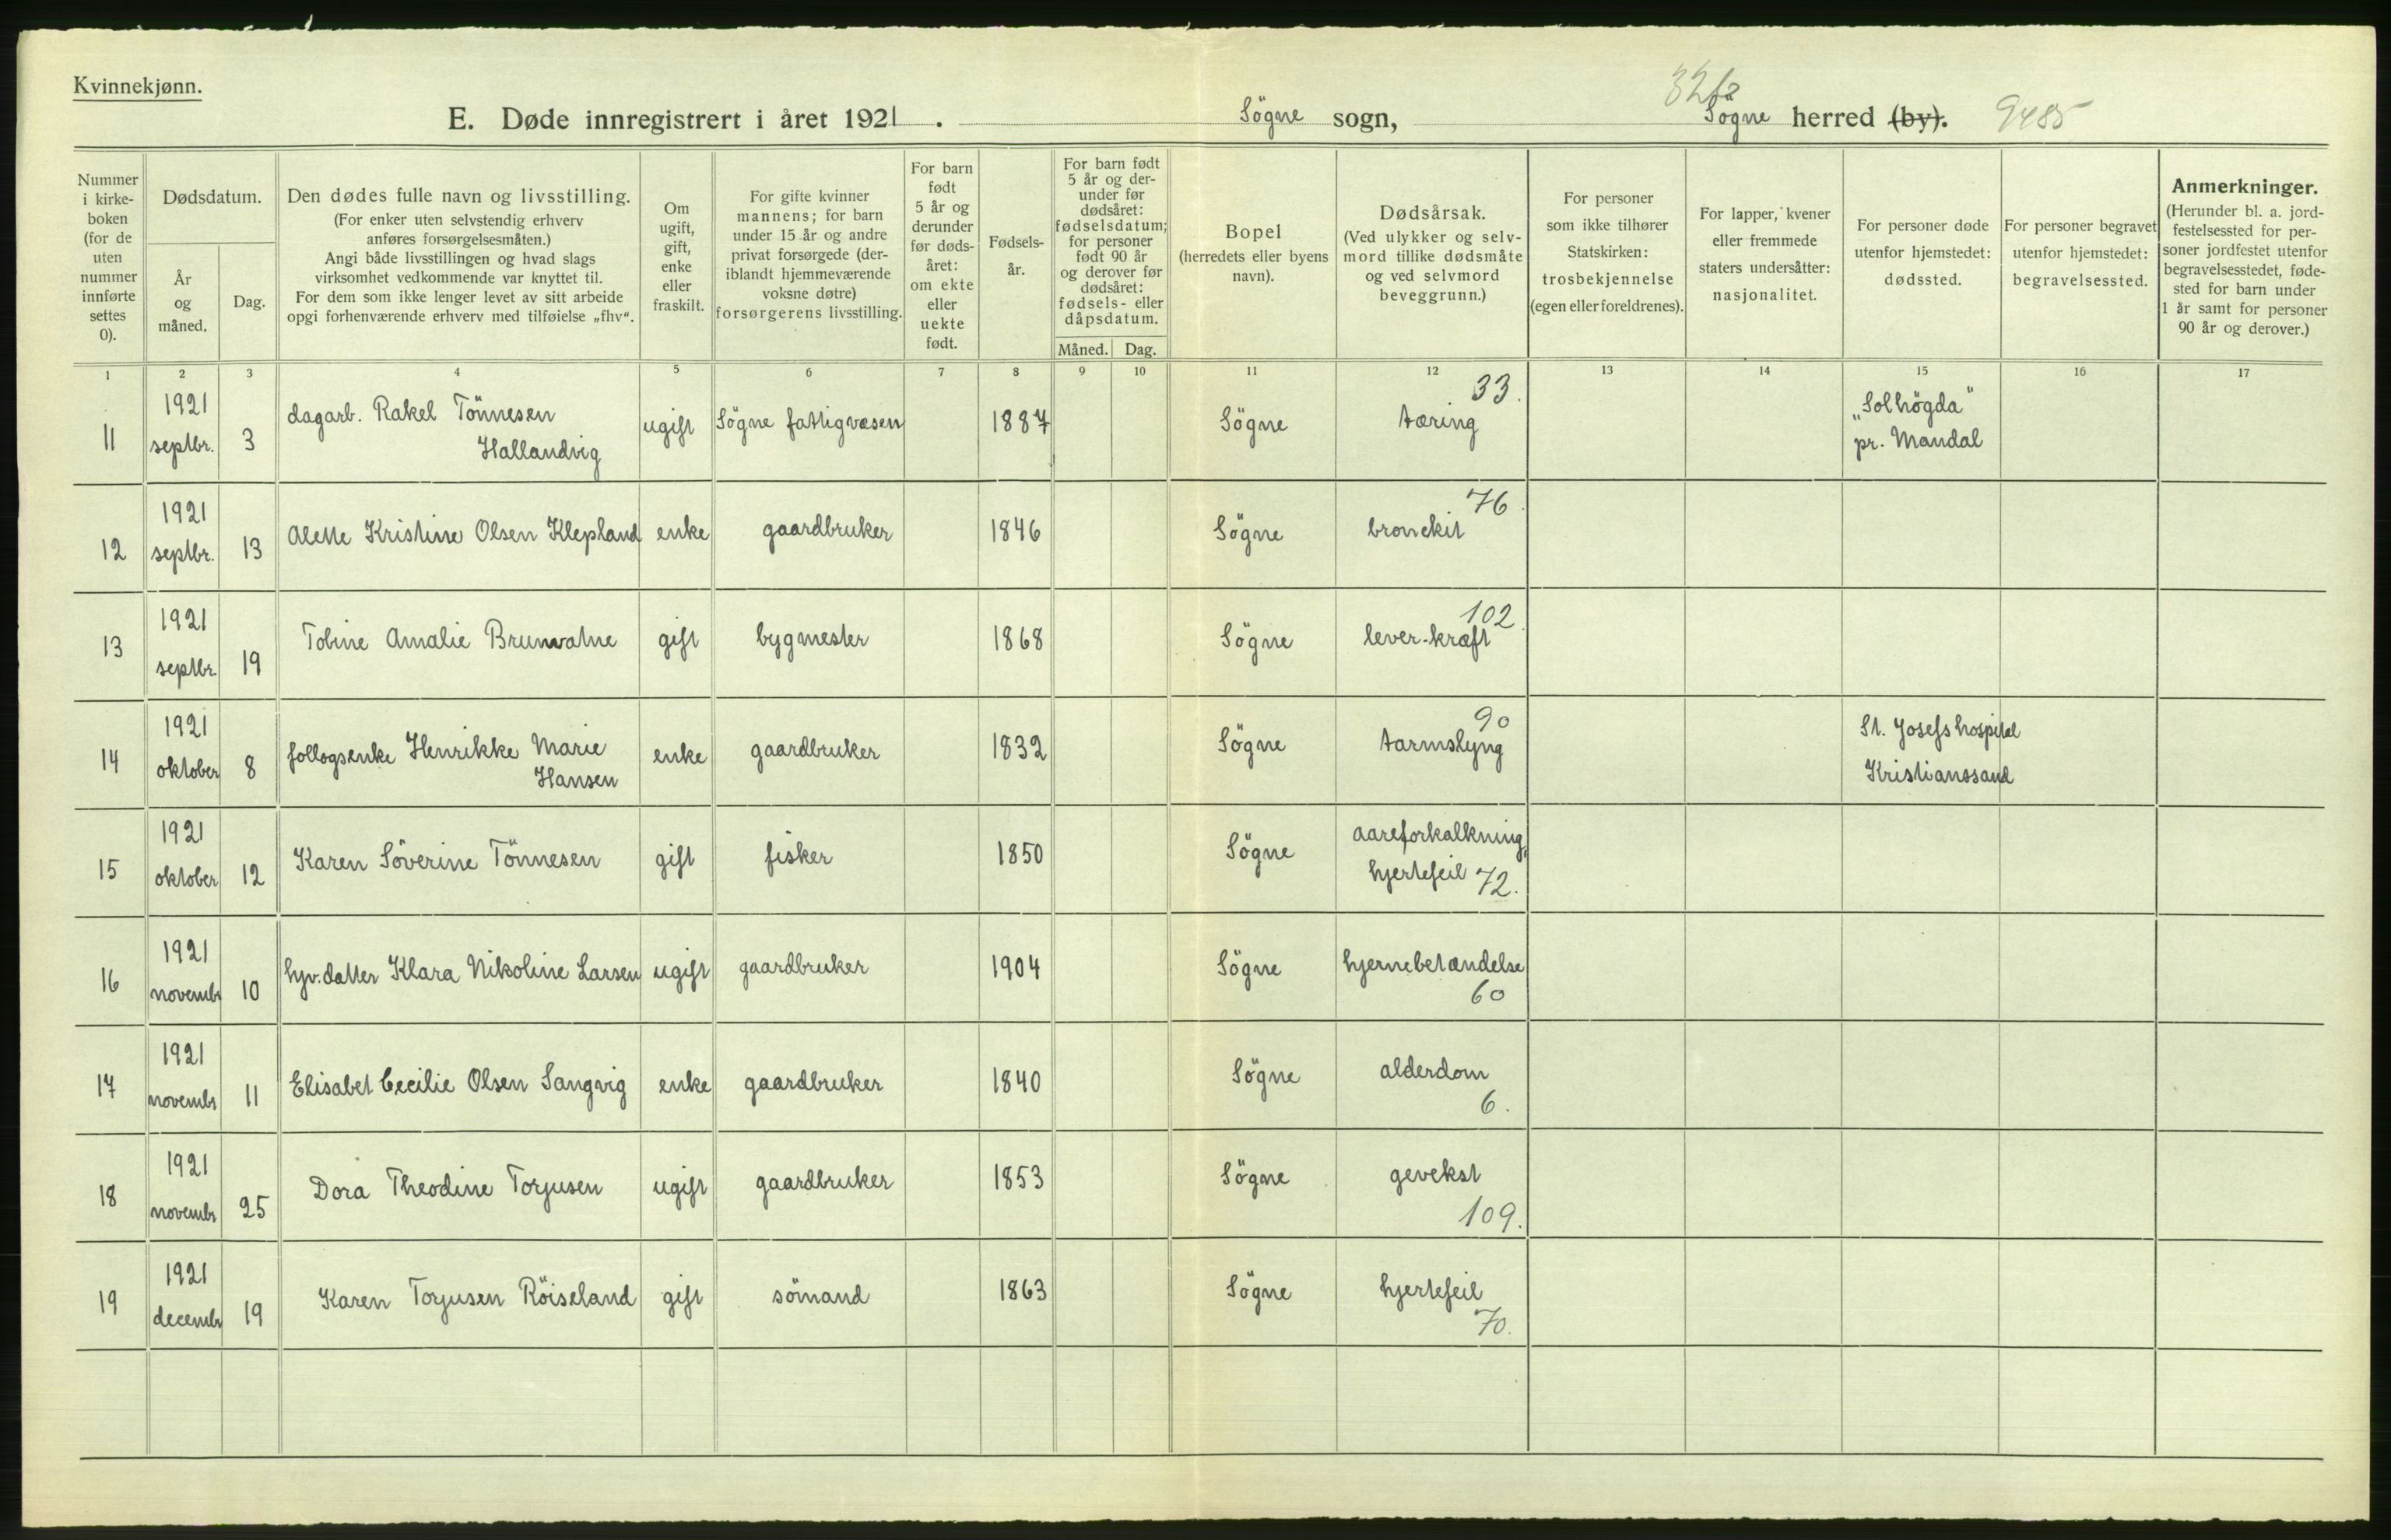 Kvinnekjønn.
E. Døde innregistrert i året 1921. Sögne sogn, Sögne herred (by). 9485
Nummer i kirkeboken (for de uten nummer innførte settes 0).
Dødsdatum.
År og måned.
Dag.
Den dødes fulle navn og livsstilling.
(For enker uten selvstendig erhverv
anføres forsørgelsesmåten.)
Angi både livsstillingen og hvad slags
virksomhet vedkommende var knyttet til.
For dem som ikke lenger levet av sitt arbeide
opgi forhenværende erhverv med tilføielse „fhv“.
Om
ugift,
gift,
enke
eller
fraskilt.
For gifte kvinner
mannens; for barn
under 15 år og andre
privat forsørgede (der-
iblandt hjemmeværende
voksne døtre)
forsørgerens livsstilling.
For barn
født
5 år og
derunder
før døds-
året:
om ekte
eller
uekte
født.
Fødsels-
år.
For barn født
5 år og der-
under før
dødsåret:
fødselsdatum;
for personer
født 90 år
og derover før
dødsåret:
fødsels- eller
dåpsdatum.
Måned. Dag.
Bopel
(herredets eller byens
navn).
Dødsårsak.
(Ved ulykker og selv-
mord tillike dødsmåte
og ved selvmord
beveggrunn.)
For personer
som ikke tilhører
Statskirken:
trosbekjennelse
(egen eller foreldrenes).
For lapper, kvener
eller fremmede
staters undersåtter:
nasjonalitet.
For personer døde
utenfor hjemstedet:
dødssted.
For personer begravet
utenfor hjemstedet:
begravelsessted.
Anmerkninger.
(Herunder bl. a. jord-
festelsessted for per-
soner jordfestet utenfor
begravelsesstedet, føde-
sted for barn under
1 år samt for personer
90 år og derover.)
1 2 3 4 5 6 7 8 9 10 11 12 13 14 15 16 17
11 1921 septbr. 3 dagarb. Rakel Tönnesen Hallandvig ugift Sögne fattigvæsen 1887 Sögne tæring 33. „Solhögda“ pr. Mandal
12 1921 septbr. 13 Alette Kristine Olsen Klepland enke gaardbruker 1846 Sögne bronckit 76.
13 1921 septbr. 19 Tobine Amalie Brunvatne gift bygmester 1868 Sögne lever-kræft 102.
14 1921 oktober 8 follogsenke Henrikke Marie Hansen enke gaardbruker 1832 Sögne tarmslyng 90 St. Josefs hospital Kristianssand
15 1921 oktober 12 Karen Söverine Tönnesen gift fisker 1850 Sögne aareforkalkning, hjertefeil 72.
16 1921 novembr 10 hjv. datter Klara Nikoline Larsen ugift gaardbruker 1904 Sögne hjernebetændelse 60
17 1921 novembr 11 Elisabet Cecilie Olsen Sangvig enke gaardbruker 1840 Sögne alderdom 6.
18 1921 novembr 25 Dora Theodine Torjusen ugift gaardbruker 1853 Sögne gevekst 109.
19 1921 decembr 19 Karen Torjusen Röiseland gift sömand 1863 Sögne hjertefeil 70.